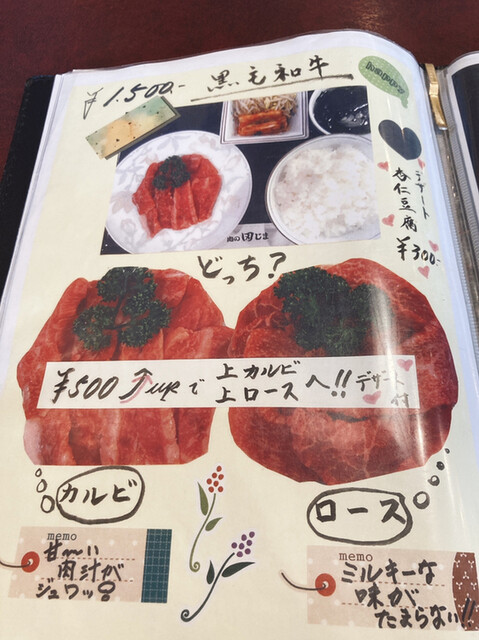 ¥1,500.- 黒毛和牛
デザート
杏仁豆腐
¥300-
肉の田じま
どっち?
¥500 ↑upで 上カルビ
上ロース へ!! デザート付
カルビ
ロース
memo
甘〜い
肉汁が
ジュワッ!
memo
ミルキーな
味が
たまらない!!